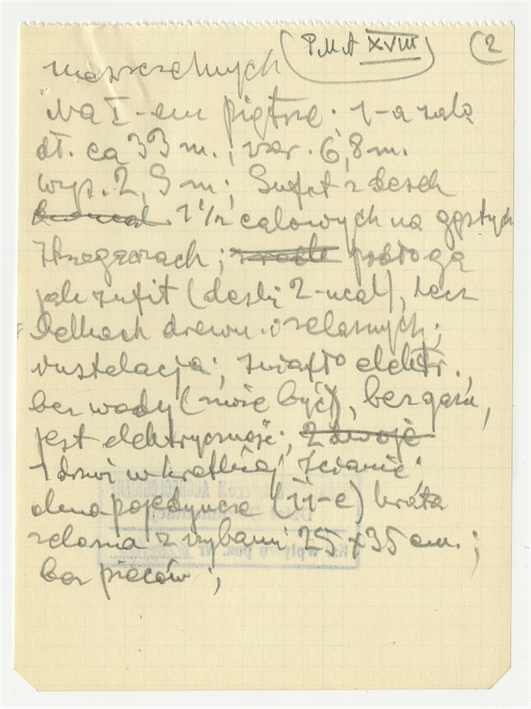 P.M.A XVIII 2
mieszczalnych
Na I-em piętrze. 1-a sala
dł. ca 33 m.; szer. 6,8 m.
wys. 2,9 m; Sufit z desek
1 1/2 calowych na gęstych
; podłoga
jak sufit (deski 2-ucal), lecz
belkach drewn. i żelaznych;
instalacja; światło elektr.
bez wody (może być), bez gazu,
jest elektryczność; 2 dwoje
1 drzwi w krótkiej ścianie
okna pojedyncze (11-e) krata
żelazna z szybami 25x35 cm.;
bez pieców;